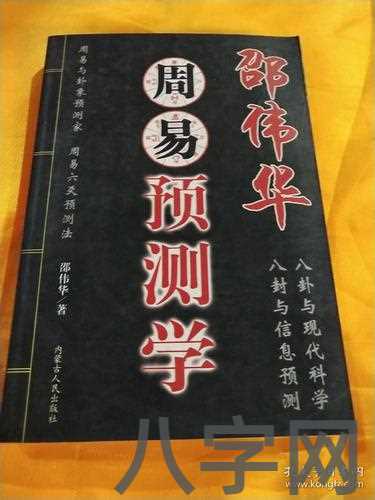 邵伟华
周易
预测学
八卦与现代科学
八封与信息预测
周易与卦象预测家 周易六爻预测法
邵伟华/著
内蒙古人民出版社
八字网